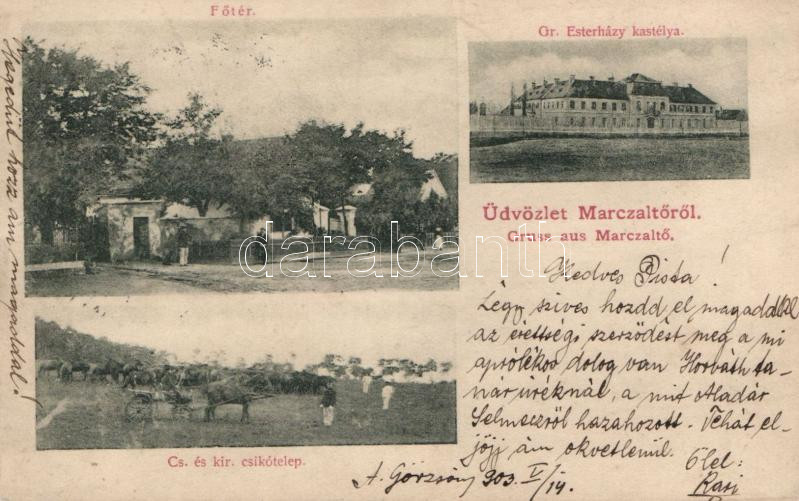 Főtér.
Gr. Esterházy kastélya.
Üdvözlet Marczaltőről.
Gruss aus Marczaltő.
darabanth.com
Kedves Pista!
Légy szives hozdd el magaddal
az érettségi szerződést meg a mi
aprólékos dolog van Horváth ta-
nár úréknál, a mit Aladár
Selmeczről hazahozott. Tehát el-
jöjj ám okvetlenül.
Ölel:
A. Görzsöny 903. V/14.
Cs. és kir. csikótelep.
hozz ám magaddal!